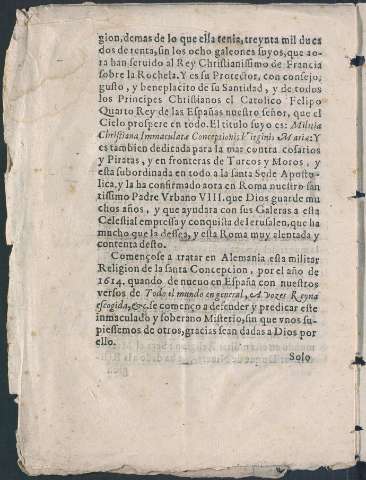 gion, demas de lo que ella tenia, treynta mil duca
dos de renta, sin los ocho galeones suyos, que ao-
ra han seruido al Rey Christianissimo de Francia
sobre la Rochela. Y es su Protector, con consejo,
gusto, y beneplacito de su Santidad, y de todos
los Principes Christianos el Catolico Felipo
Quarto Rey de las Españas nuestro señor, que el
Cielo prospere en todo. El titulo suyo es: Militia
Christiana, Immaculatæ Conceptionis Virginis Mariæ: Y
es tambien dedicada para la mar contra cosarios
y Piratas, y en fronteras de Turcos y Moros, y
esta subordinada en todo a la santa Sede Aposto-
lica, y la ha confirmado aora en Roma nuestro san
tissimo Padre Vrbano VIII. que Dios guarde mu
chos años, y que ayudara con sus Galeras a esta
Celestial empressa y conquista de Ierusalen, que ha
mucho que la dessea, y esta Roma muy alentada y
contenta desto.
Començose a tratar en Alemania esta militar
Religion de la santa Concepcion, por el año de
1614. quando de nueuo en España con nuestros
versos de Todo el mundo en general, A vozes Reyna
escogida, &c. se començo a defender y predicar este
inmaculado y soberano Misterio, sin que vnos su-
piessemos de otros, gracias sean dadas a Dios por
ello.
Solo